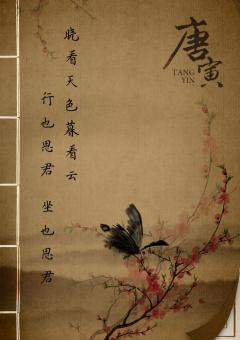 唐寅
TANG
YIN
晓看天色暮看云
行也思君 坐也思君